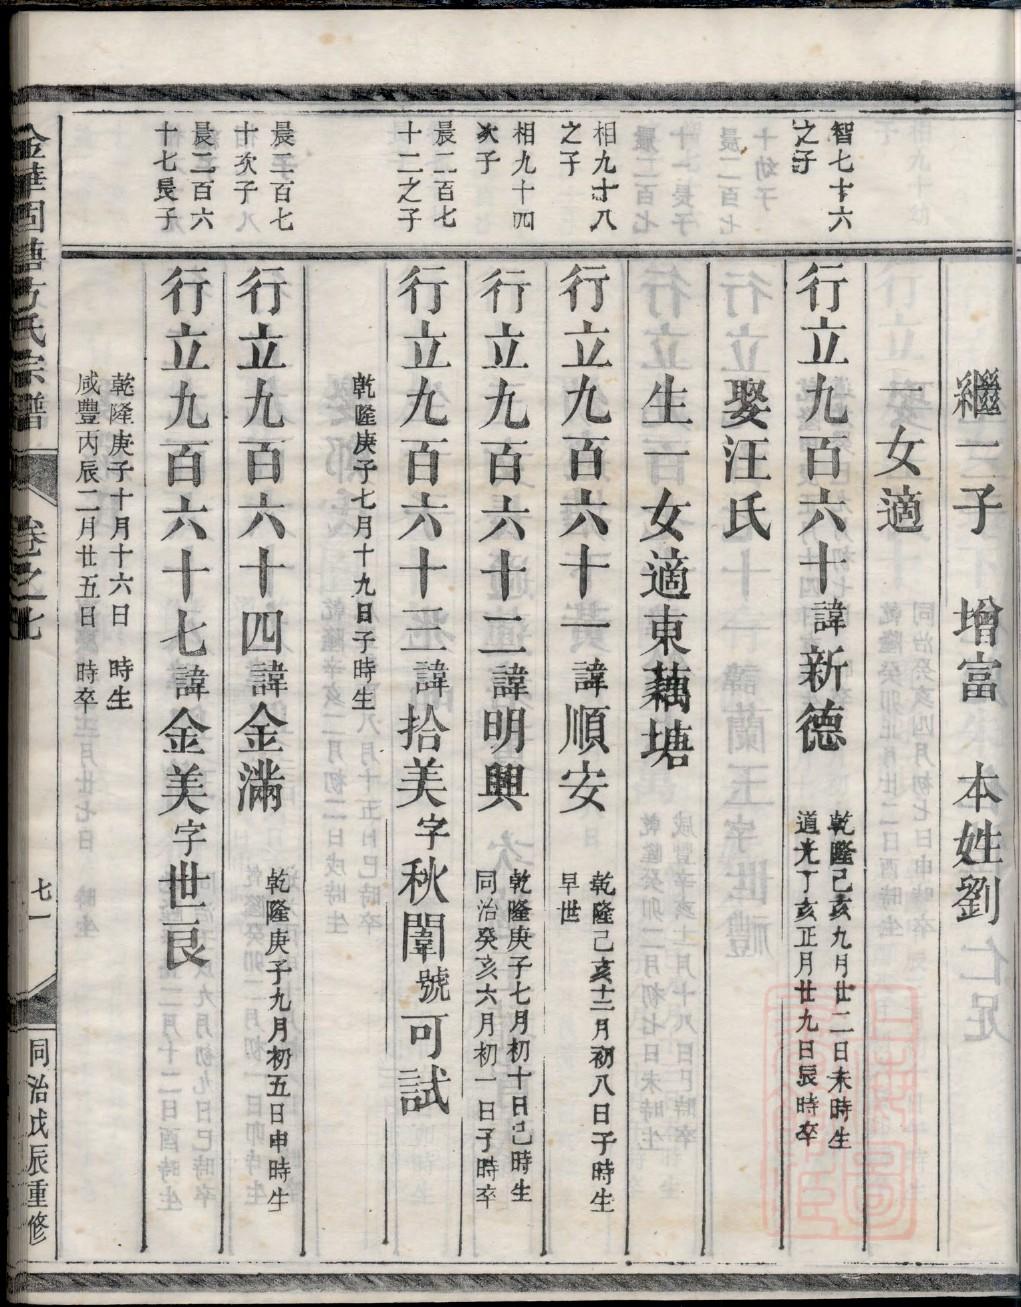 繼一子 增富 本姓劉
一女適
智七十六之子
行立九百六十諱新德 乾隆己亥九月廿二日未時生 道光丁亥正月廿九日辰時卒
娶汪氏
生一女適東藕塘
相九十八之子
行立九百六十一諱順安 乾隆己亥十二月初八日子時生 早世
相九十四次子
行立九百六十二諱明興 乾隆庚子七月初十日己時生 同治癸亥六月初一日子時卒
晨二百七十二之子
行立九百六十三諱拾美字秋闈號可試
乾隆庚子七月十九日子時生
晨二百七十次子
行立九百六十四諱金滿 乾隆庚子九月初五日申時生
晨二百六十七長子
行立九百六十七諱金美字世良
乾隆庚子十月十六日 時生
咸豐丙辰二月廿五日 時卒
金華固塘方氏宗譜 卷之七 七一 同治戊辰重修